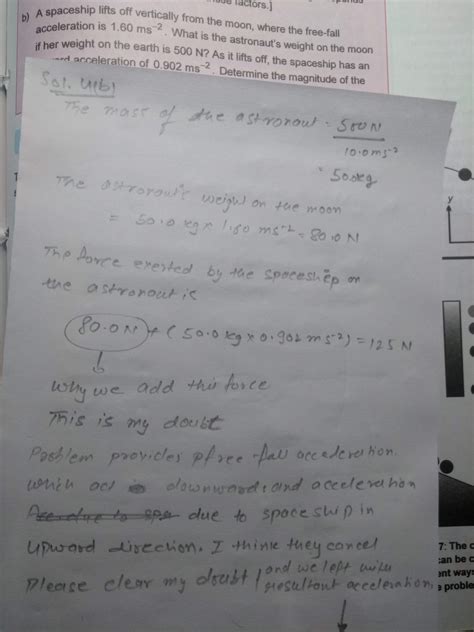 factors.]
b) A spaceship lifts off vertically from the moon, where the free-fall
acceleration is 1.60 ms⁻². What is the astronaut's weight on the moon
if her weight on the earth is 500 N? As it lifts off, the spaceship has an
acceleration of 0.902 ms⁻². Determine the magnitude of the
Sol. 4(b)
The mass of the astronaut = 500N
10.0ms⁻²
= 50.0kg
The astronaut's weight on the moon
= 50.0 kg x 1.60 ms⁻² = 80.0 N
The force exerted by the spaceship on
the astronaut is
80.0N + (50.0 kg x 0.902 ms⁻²) = 125 N
Why we add this force
This is my doubt
Problem provides free-fall acceleration
which act downward and acceleration
due to spaceship in
upward direction. I think they cancel
and we left with
Please clear my doubt / resultant acceleration
y
7: The c
can be c
ent ways
s proble